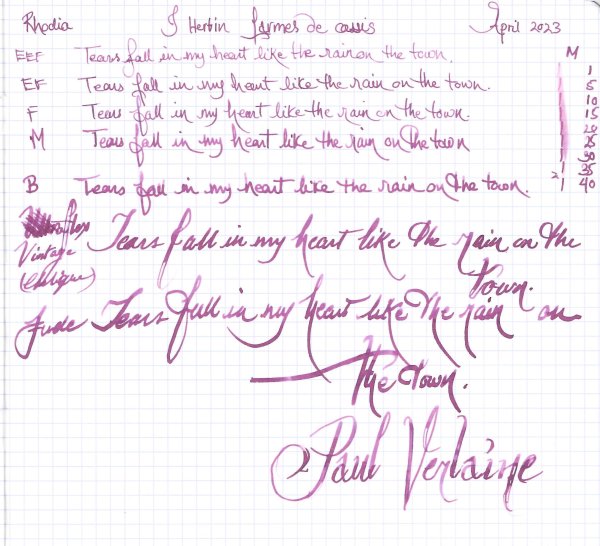 Rhodia J Herbin Larmes de cassis April 2023
EEF Tears fall in my heart like the rain on the town. M
EF Tears fall in my heart like the rain on the town. 1
5
F Tears fall in my heart like the rain on the town. 10
15
M Tears fall in my heart like the rain on the town 20
25
30
35
B Tears fall in my heart like the rain on the town. 2 40
flex
Vintage Tears fall in my heart like the rain on the
(oblique) town.
Fude Tears fall in my heart like the rain on
the town.
Paul Verlaine